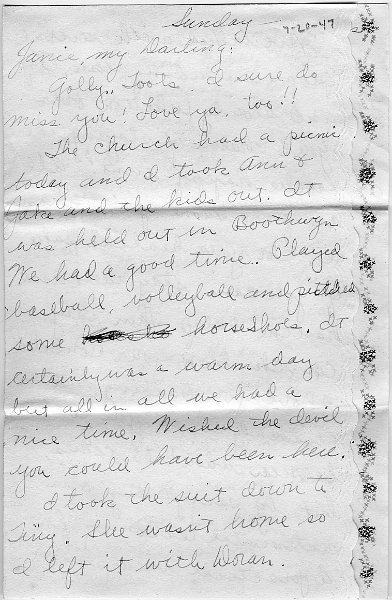 Sunday 7-20-47
Janie, my Darling:
Golly, Toots, I sure do
miss you! Love ya, too!!
The church had a picnic
today and I took Ann &
Jake and the kids out. It
was held out in Boothwyn
We had a good time. Played
baseball, volleyball and pitched
some horseshoes. It
certainly was a warm day
but all in all we had a
nice time. Wished the devil
you could have been here.
I took the suit down to
Tiny. She wasn't home so
I left it with Doran.